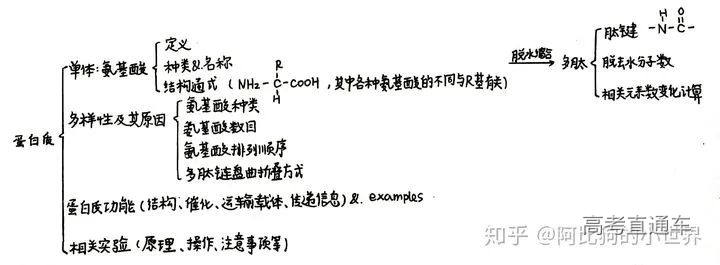 定义
单体:氨基酸 种类&名称
结构通式 ( NH₂-C-COOH ,其中各种氨基酸的不同与R基有关)
R
H
脱水缩合
多肽
肽键 -N-C-
H O
脱去水分子数
相关元素数变化计算
蛋白质
多样性及其原因
氨基酸种类
氨基酸数目
氨基酸排列顺序
多肽链盘曲折叠方式
蛋白质功能(结构、催化、运输载体、传递信息) & examples
相关实验(原理、操作、注意事项等)
高考直通车
知乎 @阿比狗的小世界